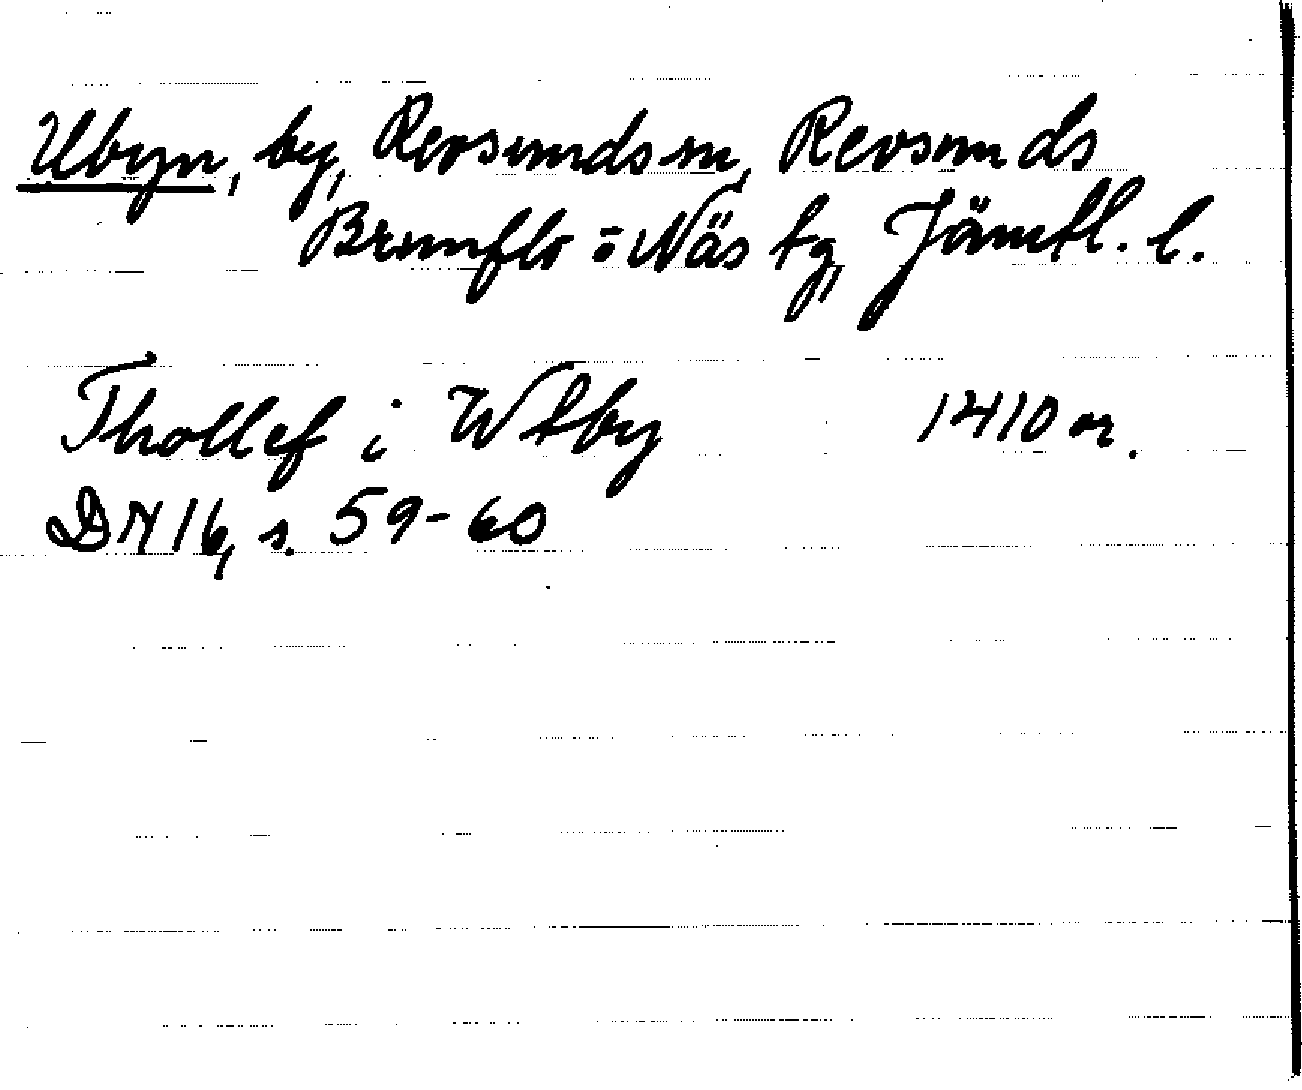 Ubyn, by, Revsunds sn, Revsunds
Brunflo o Näs tg, Jämtl. l.
Thollef i Wtby 1410 or.
DN 16, s. 59-60